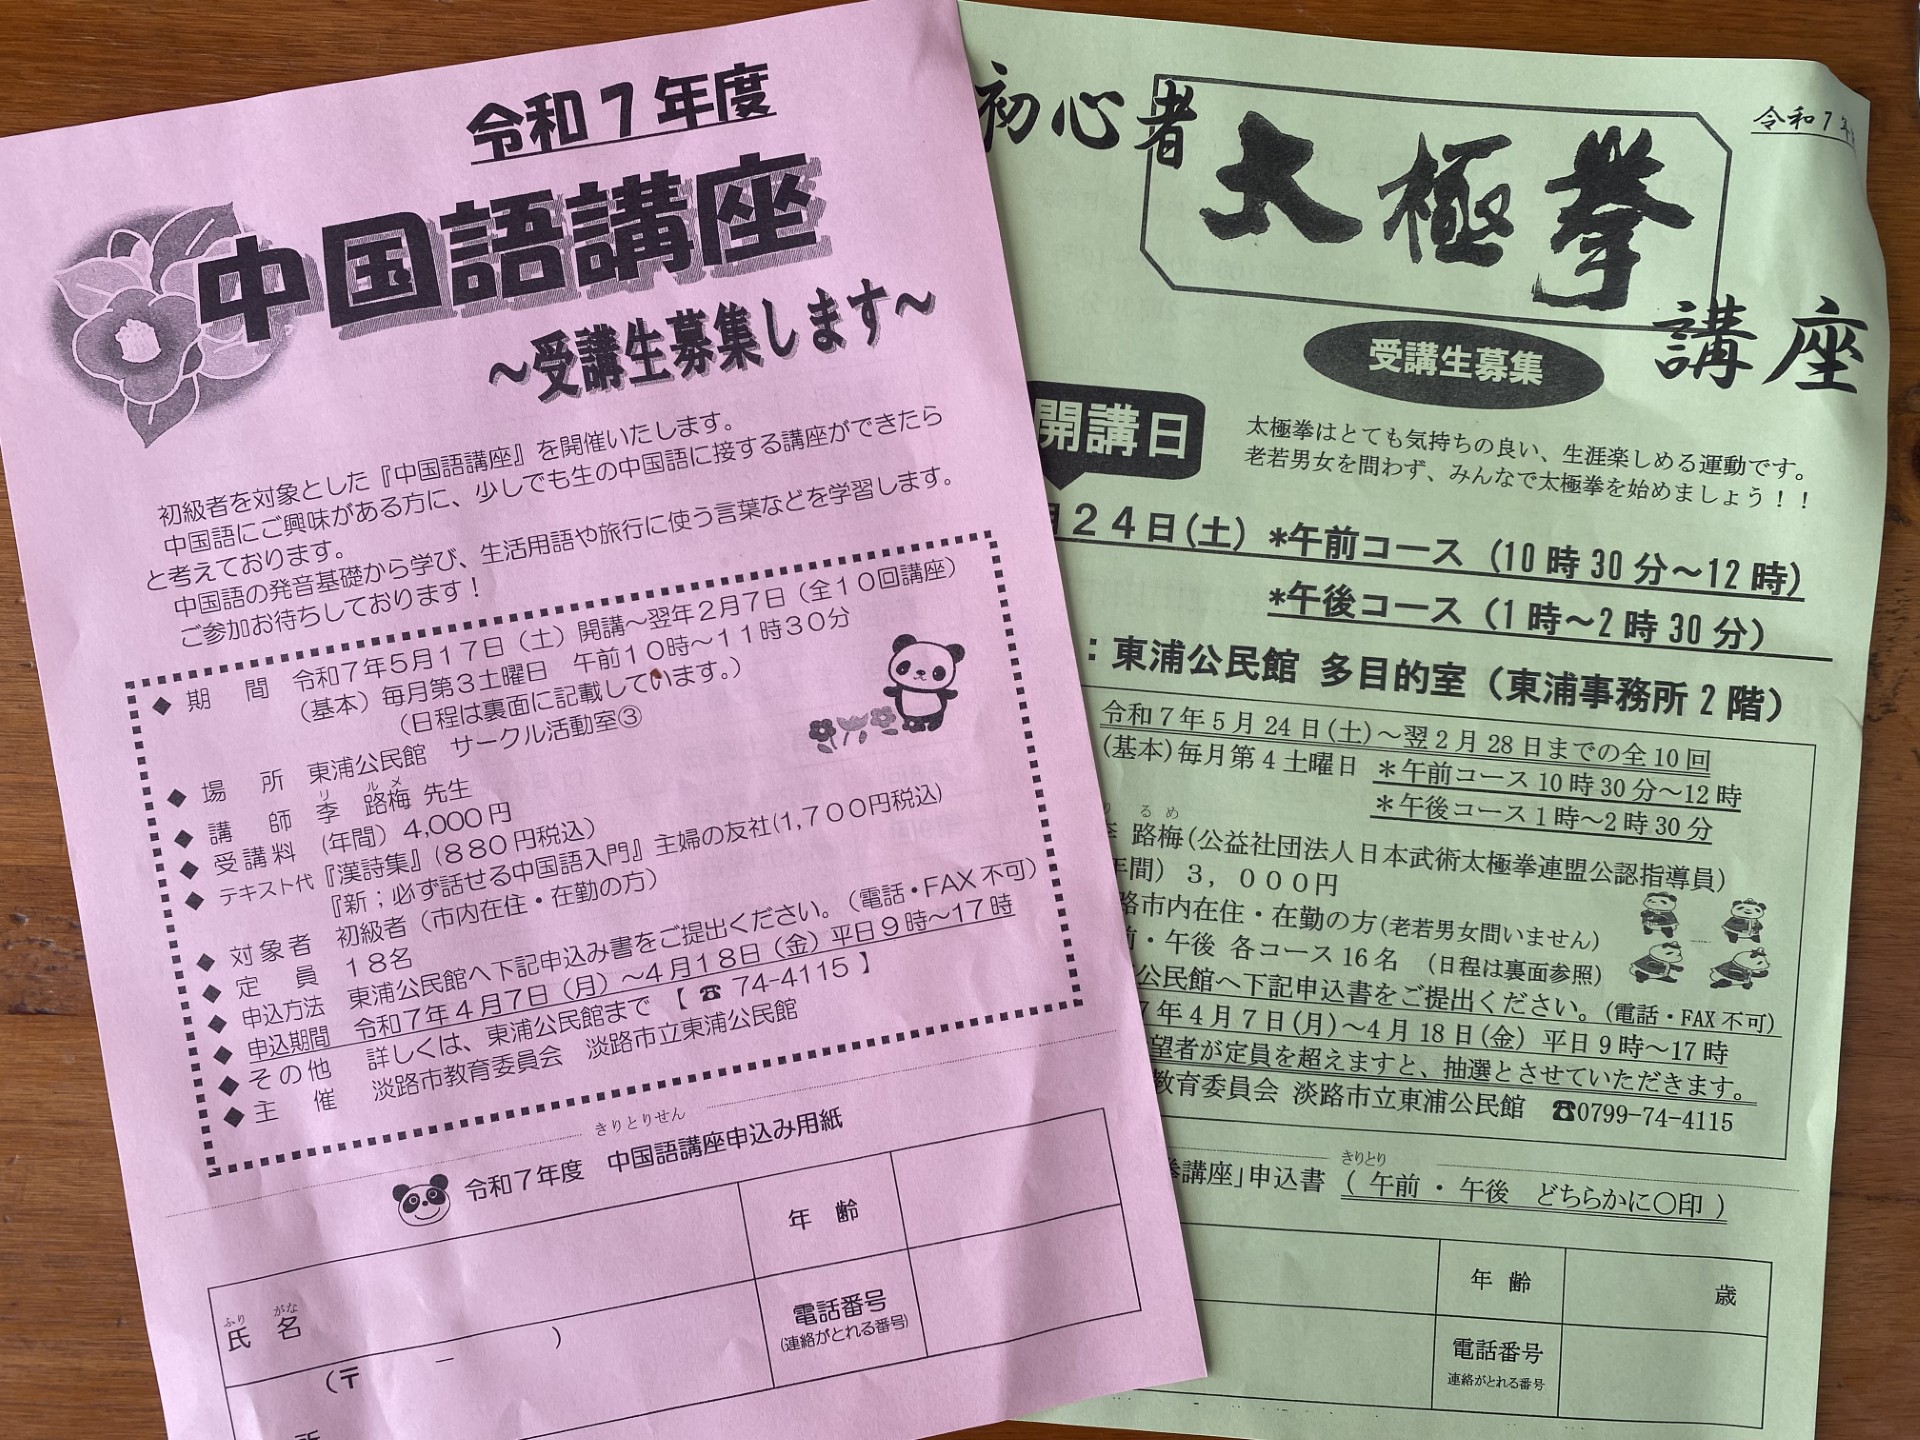 令和７年度
中国語講座
～受講生募集します～
初級者を対象とした『中国語講座』を開催いたします。
中国語にご興味がある方に、少しでも生の中国語に接する講座ができたら
と考えております。
中国語の発音基礎から学び、生活用語や旅行に使う言葉などを学習します。
ご参加お待ちしております！
◆ 期　間　令和７年５月１７日（土）開講～翌年２月７日（全１０回講座）
（基本）毎月第３土曜日　午前１０時～１１時３０分
（日程は裏面に記載しています。）
◆ 場　所　東浦公民館　サークル活動室③
リ　ルメ
◆ 講　師　李　路梅 先生
◆ 受講料　（年間）４,０００円
◆ テキスト代　『漢詩集』（８８０円税込）
『新；必ず話せる中国語入門』主婦の友社（１,７００円税込）
◆ 対象者　初級者（市内在住・在勤の方）
◆ 定　員　１８名
◆ 申込方法　東浦公民館へ下記申込み書をご提出ください。（電話・FAX 不可）
◆ 申込期間　令和７年４月７日（月）～４月１８日（金）平日９時～１７時
◆ その他　詳しくは、東浦公民館まで【 ☎ 74-4115 】
◆ 主　催　淡路市教育委員会　淡路市立東浦公民館
きりとりせん
令和７年度　中国語講座申込み用紙
ふり　がな
氏　名
年　齢
（〒　－　）
電話番号
（連絡がとれる番号）
所
令和７年
初心者
太極拳
講座
受講生募集
開講日
太極拳はとても気持ちの良い、生涯楽しめる運動です。
老若男女を問わず、みんなで太極拳を始めましょう！！
月２４日(土) *午前コース（10 時 30 分～12 時）
*午後コース（1 時～2 時 30 分）
：東浦公民館 多目的室（東浦事務所 2 階）
令和 7 年 5 月 24 日(土)～翌 2 月 28 日までの全 10 回
(基本)毎月第 4 土曜日 ＊午前コース 10 時 30 分～12 時
＊午後コース 1 時～2 時 30 分
り るめ
李 路梅(公益社団法人日本武術太極拳連盟公認指導員)
年間）３，０００円
路市内在住・在勤の方(老若男女問いません)
前・午後 各コース 16 名　(日程は裏面参照)
公民館へ下記申込書をご提出ください。(電話・FAX 不可)
7 年 4 月 7 日(月)～4 月 18 日(金) 平日 9 時～17 時
望者が定員を超えますと、抽選とさせていただきます。
教育委員会 淡路市立東浦公民館　☎0799-74-4115
きりとり
拳講座」申込書 （ 午前 ・ 午後　どちらかに○印 ）
年 齢
歳
電話番号
連絡がとれる番号